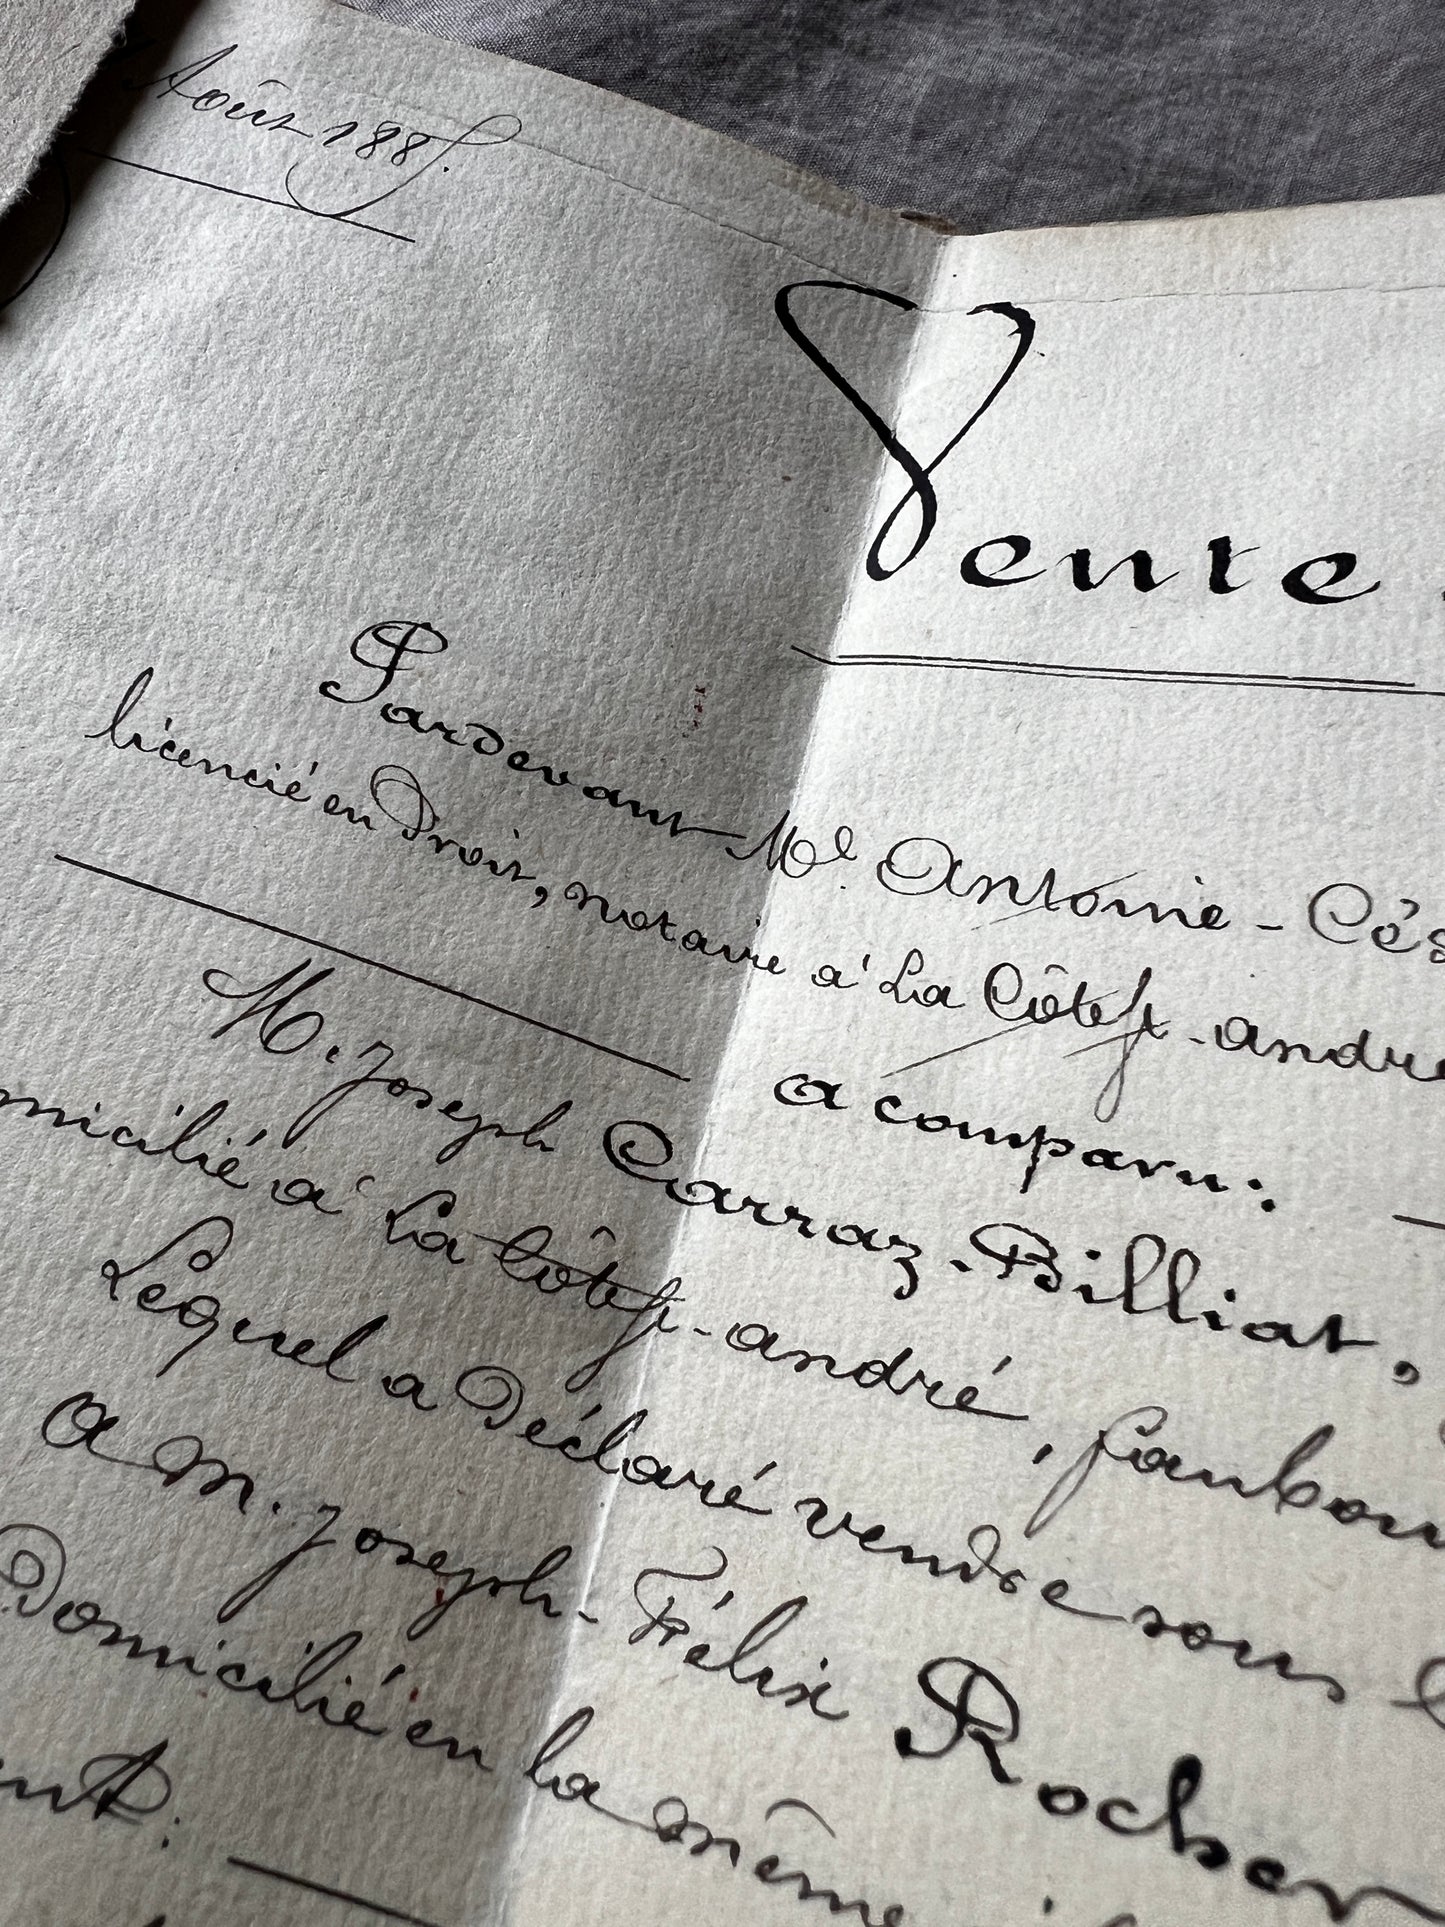 Août 188
Vente
Pardevant Me. Antoine-Cés
licencié en Droit, notaire à La CôteSt-andré
a comparu:
M. Joseph Carraz-Billiat,
micilié à La CôteSt-andré, faubou
Lequel a Déclaré vendre sous l
a M. Joseph-Félix Rocher
Domicilié en la même
ent: